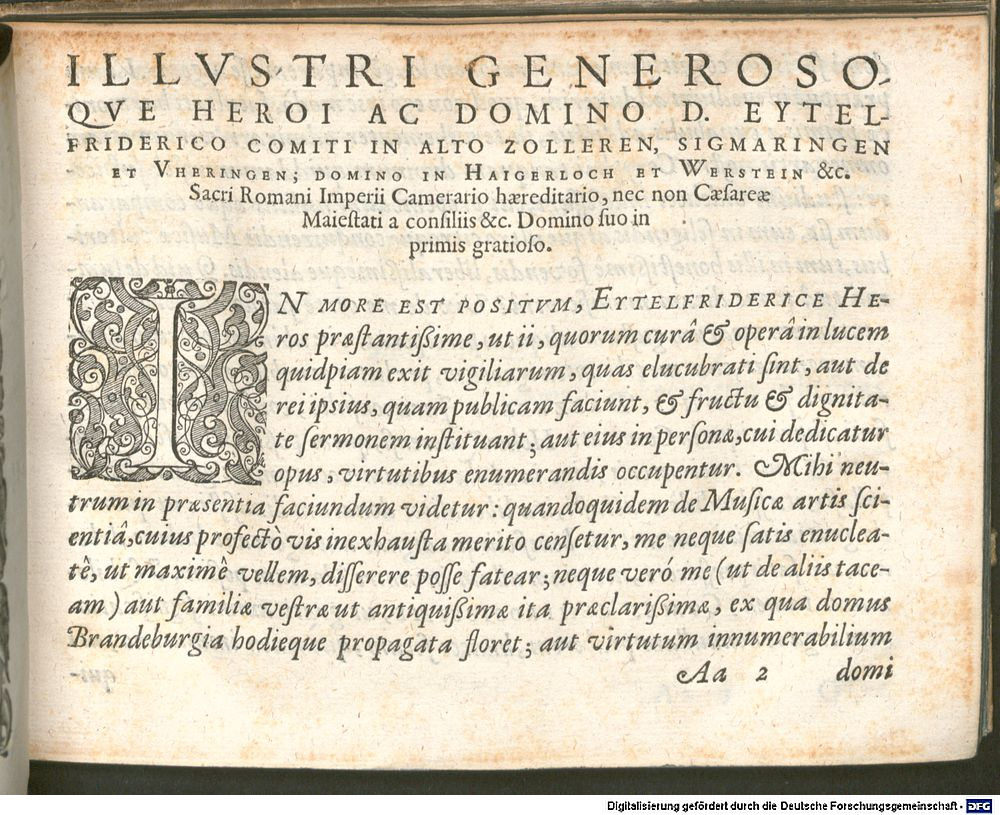 ILLVSTRI GENEROSO
QVE HEROI AC DOMINO D. EYTEL-
FRIDERICO COMITI IN ALTO ZOLLEREN, SIGMARINGEN
ET VHERINGEN; DOMINO IN HAIGERLOCH ET WERSTEIN &c.
Sacri Romani Imperii Camerario hæreditario, nec non Cæſareæ
Maieſtati a conſiliis &c. Domino ſuo in
primis gratioſo.
IN MORE EST POSITVM, EYTELFRIDERICE HE-
ros præſtantißime, ut ii, quorum curâ & operâ in lucem
quidpiam exit vigiliarum, quas elucubrati ſint, aut de
rei ipsius, quam publicam faciunt, & fructu & dignita-
te ſermonem inſtituant; aut eius in perſonæ, cui dedicatur
opus, virtutibus enumerandis occupentur. Mihi neu-
trum in præſentia faciundum videtur: quandoquidem de Muſicæ artis ſci-
entiâ, cuius profectò vis inexhauſta merito cenſetur, me neque ſatis enuclea-
tê, ut maximê vellem, diſſerere poſſe fatear; neque veró me (ut de aliis tace-
am) aut familiæ veſtræ ut antiquißimæ ita præclarißimæ, ex qua domus
Brandeburgia hodieque propagata floret; aut virtutum innumerabilium
Aa 2 domi
Digitalisierung gefördert durch die Deutsche Forschungsgemeinschaft - DFG